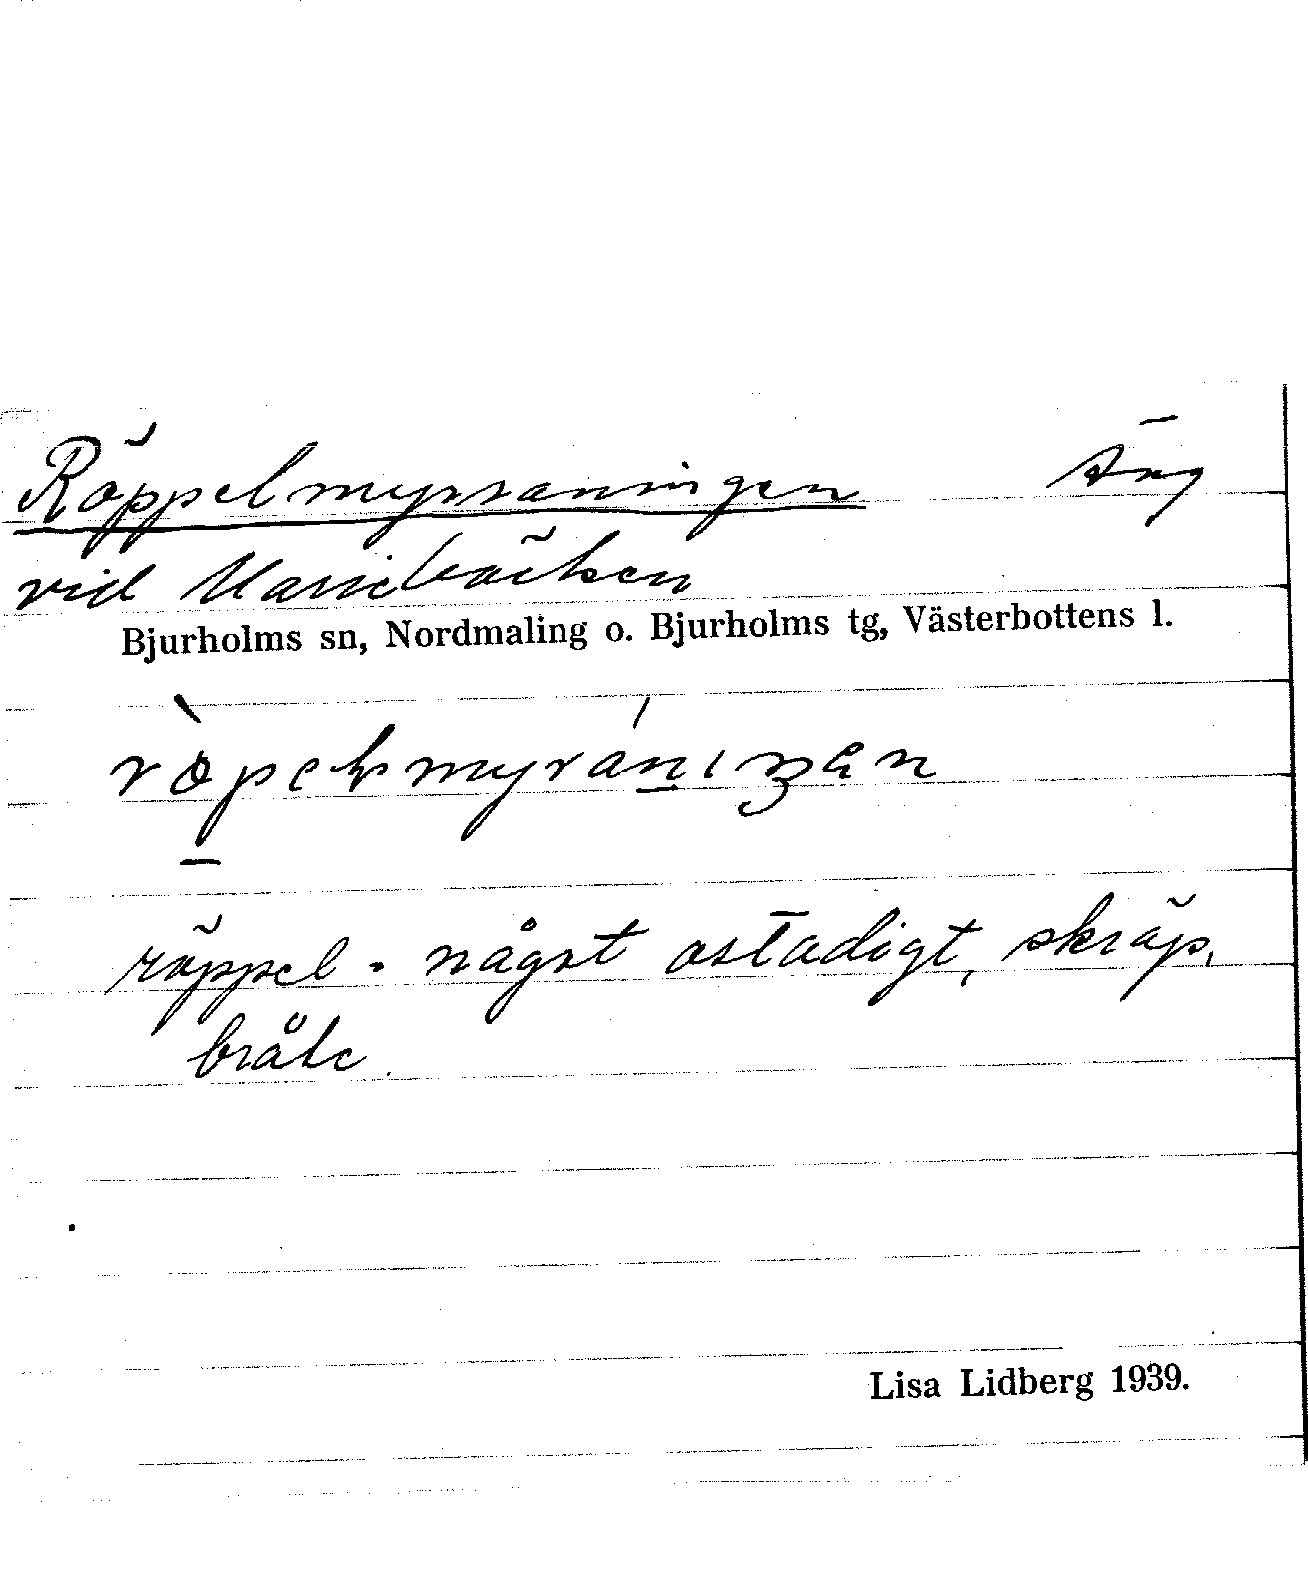 Röppelmyrraningen Äng
vid Mariebäcken
Bjurholms sn, Nordmaling o. Bjurholms tg, Västerbottens l.
röppel - något ostadigt, skräp,
bråte.
Lisa Lidberg 1939.